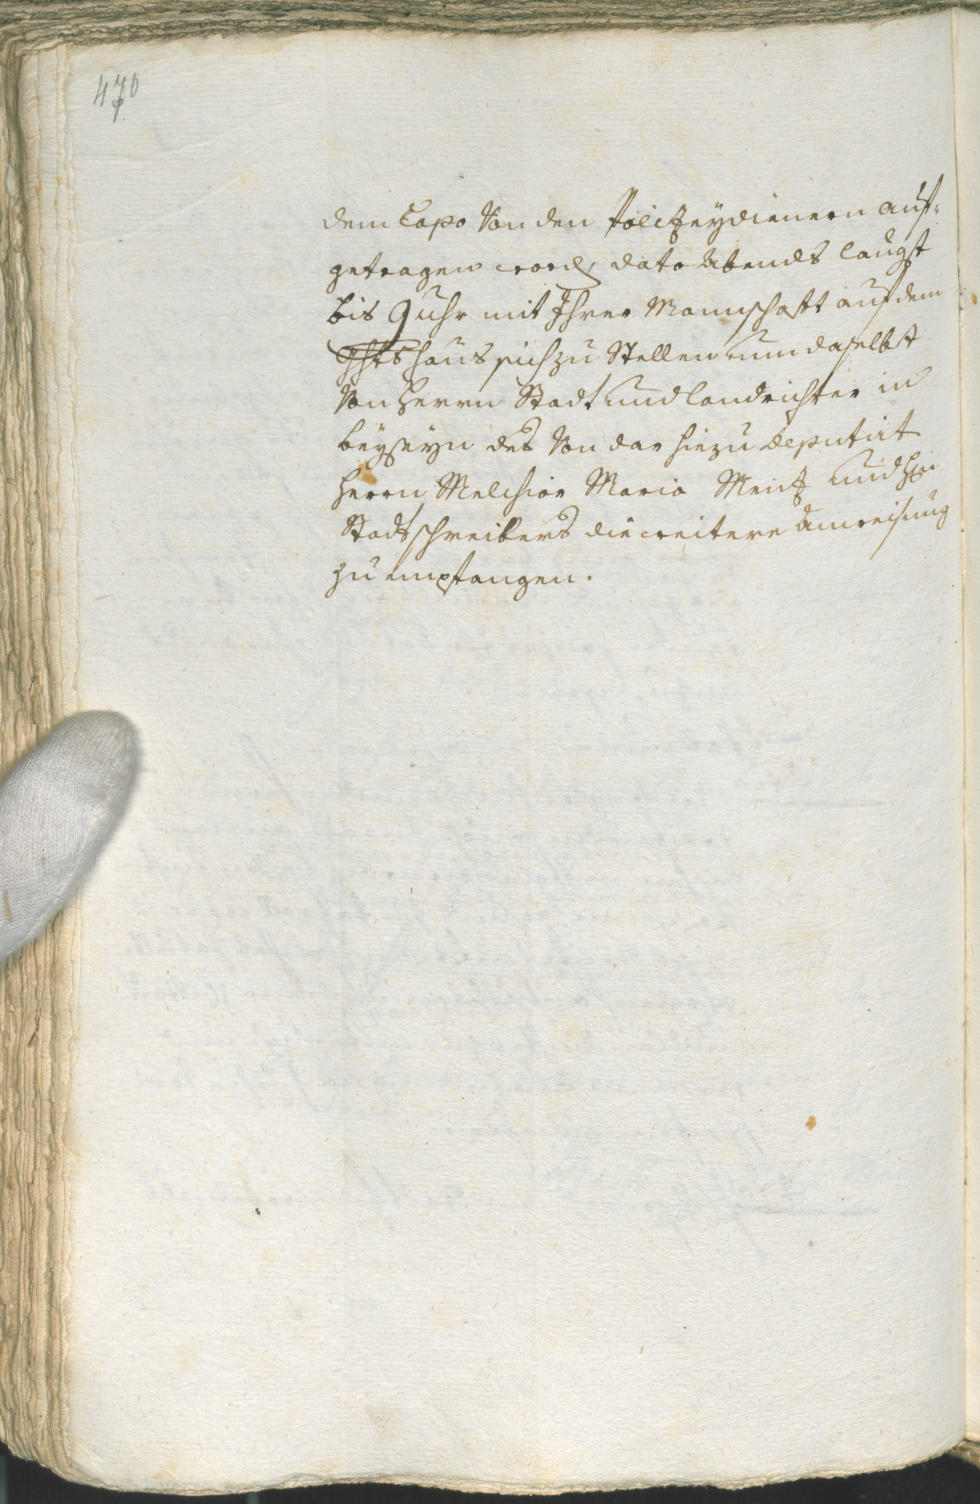 470
dem Capo Von den Policeÿdienern auf-
getragen word, dato Abends längst
bis 9 uhr mit Ihrer Mannschafft auf dem
Rhthaus sich zu Stellen, um daselbst
Von herrn Stadt und landrichter in
beÿseÿn des Von dar hiezu Deputirt
herrn Melchior Maria Mentz und
Stadtschreibers die weitere anweisung
zu empfangen.